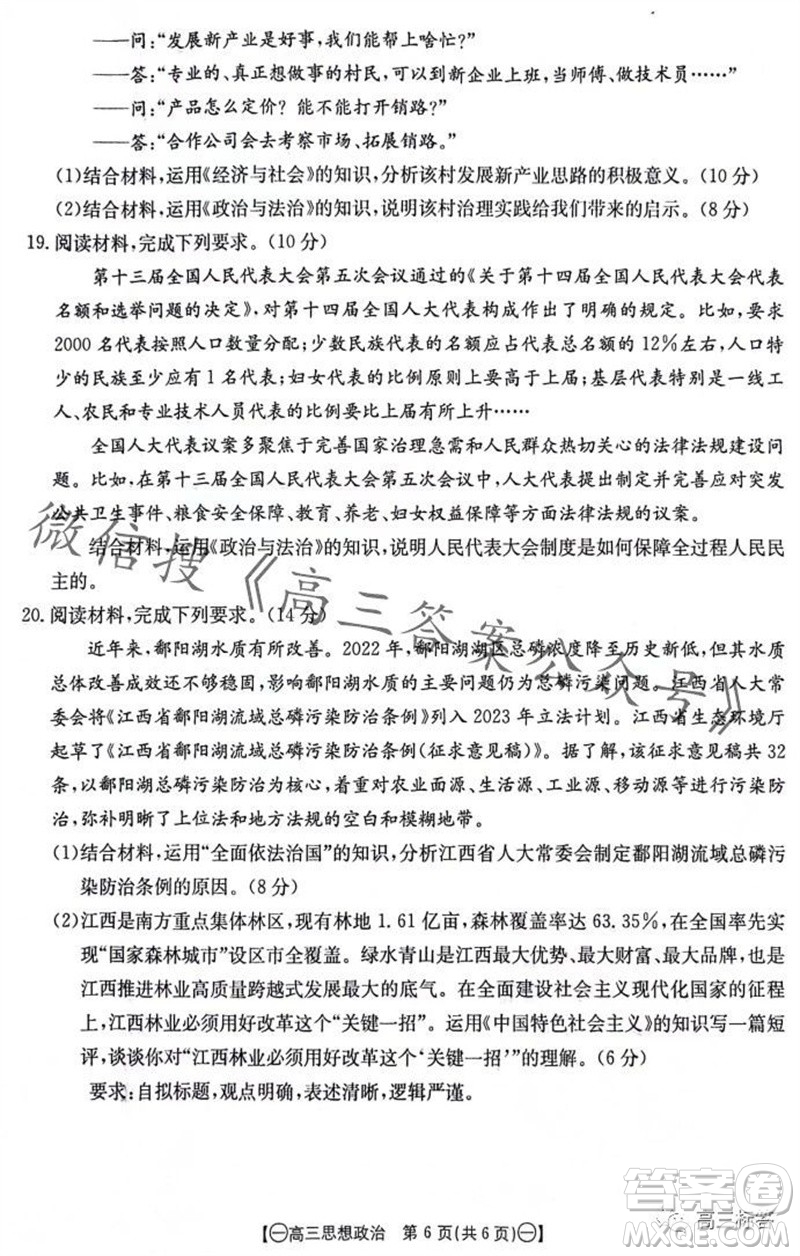 ——问:“发展新产业是好事,我们能帮上啥忙?”
——答:“专业的、真正想做事的村民,可以到新企业上班,当师傅、做技术员……”
——问:“产品怎么定价? 能不能打开销路?”
——答:“合作公司会去考察市场、拓展销路。”
(1)结合材料,运用《经济与社会》的知识,分析该村发展新产业思路的积极意义。(10 分)
(2)结合材料,运用《政治与法治》的知识,说明该村治理实践给我们带来的启示。(8 分)
19. 阅读材料,完成下列要求。(10 分)
第十三届全国人民代表大会第五次会议通过的《关于第十四届全国人民代表大会代表
名额和选举问题的决定》,对第十四届全国人大代表构成作出了明确的规定。比如,要求
2000 名代表按照人口数量分配;少数民族代表的名额应占代表总名额的 12%左右,人口特
少的民族至少应有 1 名代表;妇女代表的比例原则上要高于上届;基层代表特别是一线工
人、农民和专业技术人员代表的比例要比上届有所上升……
全国人大代表议案多聚焦于完善国家治理急需和人民群众热切关心的法律法规建设问
题。比如,在第十三届全国人民代表大会第五次会议中,人大代表提出了完善应对突发
公共卫生事件、粮食安全保障、教育、养老、妇女权益保障等方面法律法规的议案。
结合材料,运用《政治与法治》的知识,说明人民代表大会制度是如何保障全过程人民民
主的。
20. 阅读材料,完成下列要求。(14 分)
近年来,鄱阳湖水质有所改善。2022 年,鄱阳湖湖区总磷浓度降至历史新低,但其水质
总体改善成效还不够稳固,影响鄱阳湖水质的主要问题仍为总磷污染问题。江西省人大常
委会将《江西省鄱阳湖流域总磷污染防治条例》列入 2023 年立法计划。江西省生态环境厅
起草了《江西省鄱阳湖流域总磷污染防治条例(征求意见稿)》。据了解,征求意见稿共 32
条,以鄱阳湖总磷防治为核心,着重对农业面源、生活源、工业源、移动源等进行污染防
治,弥补明晰了上位法和地方法规的空白和模糊地带。
(1)结合材料,运用“全面依法治国”的知识,分析江西省人大常委会制定鄱阳湖流域总磷污
染防治条例的原因。(8 分)
(2)江西是南方重点集体林区,现有林地 1.61 亿亩,森林覆盖率达 63.35%,在全国率先实
现“国家森林城市”设区市全覆盖。绿水青山是江西最大优势、最大财富、最大品牌,也
是江西推进林业高质量跨越式发展最大的底气。在全面建设社会主义现代化国家的征程
上,江西林业必须用好改革这个“关键一招”。运用《中国特色社会主义》的知识写一篇短
评,谈谈你对“江西林业必须用好改革这个‘关键一招’”的理解。(6 分)
要求:自拟标题,观点明确,表述清晰,逻辑严谨。
微信搜《高三答案公众号》
【㊀高三思想政治 第 6 页(共 6 页)㊀】
答案圈
高三标答
MXQE.COM